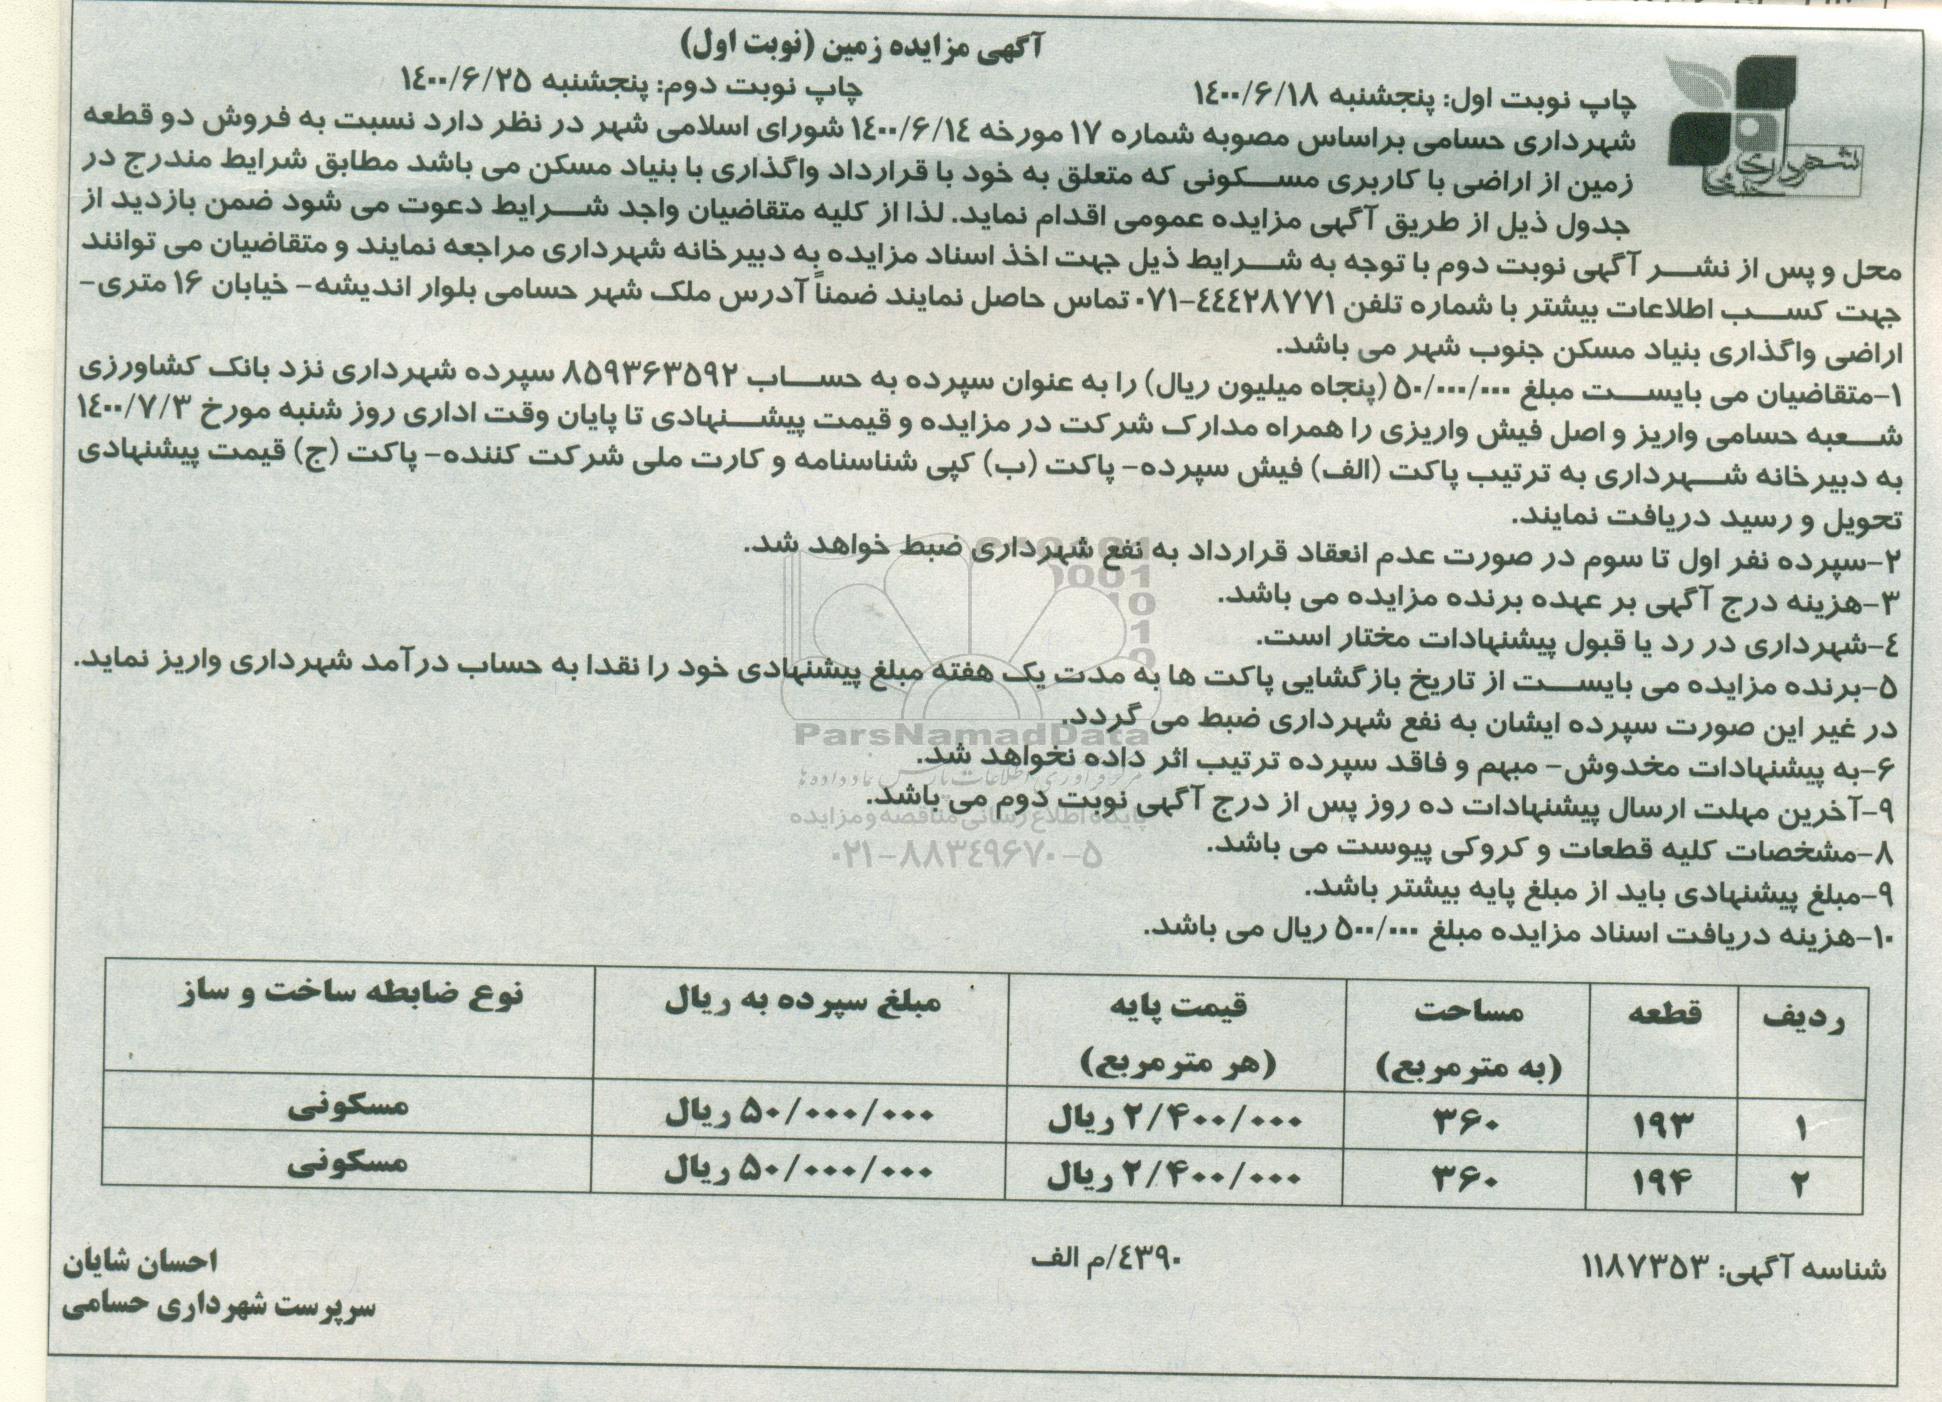 آگهی مزایده زمین (نوبت اول)
چاپ نوبت اول: پنجشنبه ۱۴۰۰/۶/۱۸ چاپ نوبت دوم: پنجشنبه ۱۴۰۰/۶/۲۵
شهرداری حسامی
شهرداری حسامی براساس مصوبه شماره ۱۷ مورخه ۱۴۰۰/۶/۱۴ شورای اسلامی شهر در نظر دارد نسبت به فروش دو قطعه
زمین از اراضی با کاربری مسکونی که متعلق به خود با قرارداد واگذاری با بنیاد مسکن می باشد مطابق شرایط مندرج در
جدول ذیل از طریق آگهی مزایده عمومی اقدام نماید. لذا از کلیه متقاضیان واجد شرایط دعوت می شود ضمن بازدید از
محل و پس از نشر آگهی نوبت دوم با توجه به شرایط ذیل جهت اخذ اسناد مزایده به دبیرخانه شهرداری مراجعه نمایند و متقاضیان می توانند
جهت کسب اطلاعات بیشتر با شماره تلفن ۴۴۴۲۸۷۷۱-۰۷۱ تماس حاصل نمایند ضمناً آدرس ملک شهر حسامی بلوار اندیشه- خیابان ۱۶ متری-
اراضی واگذاری بنیاد مسکن جنوب شهر می باشد.
۱-متقاضیان می بایست مبلغ ۵۰/۰۰۰/۰۰۰ (پنجاه میلیون ریال) را به عنوان سپرده به حساب ۸۵۹۳۶۳۵۹۲ سپرده شهرداری نزد بانک کشاورزی
شعبه حسامی واریز و اصل فیش واریزی را همراه مدارک شرکت در مزایده و قیمت پیشنهادی تا پایان وقت اداری روز شنبه مورخ ۱۴۰۰/۷/۳
به دبیرخانه شهرداری به ترتیب پاکت (الف) فیش سپرده- پاکت (ب) کپی شناسنامه و کارت ملی شرکت کننده- پاکت (ج) قیمت پیشنهادی
تحویل و رسید دریافت نمایند.
۲-سپرده نفر اول تا سوم در صورت عدم انعقاد قرارداد به نفع شهرداری ضبط خواهد شد.
۳-هزینه درج آگهی بر عهده برنده مزایده می باشد.
۴-شهرداری در رد یا قبول پیشنهادات مختار است.
۵-برنده مزایده می بایست از تاریخ بازگشایی پاکت ها به مدت یک هفته مبلغ پیشنهادی خود را نقدا به حساب درآمد شهرداری واریز نماید.
در غیر این صورت سپرده ایشان به نفع شهرداری ضبط می گردد.
ParsNamadData
۶-به پیشنهادات مخدوش- مبهم و فاقد سپرده ترتیب اثر داده نخواهد شد.
مرکز فرآوری اطلاعات پارس نماد داده ها
۹-آخرین مهلت ارسال پیشنهادات ده روز پس از درج آگهی نوبت دوم می باشد.
پایگاه اطلاع رسانی مناقصه و مزایده
۸-مشخصات کلیه قطعات و کروکی پیوست می باشد.
۰۲۱-۸۸۳۴۹۶۷۰-۵
۹-مبلغ پیشنهادی باید از مبلغ پایه بیشتر باشد.
۱۰-هزینه دریافت اسناد مزایده مبلغ ۵۰۰/۰۰۰ ریال می باشد.
ردیف قطعه مساحت (به مترمربع) قیمت پایه (هر مترمربع) مبلغ سپرده به ریال نوع ضابطه ساخت و ساز
۱ ۱۹۳ ۳۶۰ ۲/۴۰۰/۰۰۰ ریال ۵۰/۰۰۰/۰۰۰ ریال مسکونی
۲ ۱۹۴ ۳۶۰ ۲/۴۰۰/۰۰۰ ریال ۵۰/۰۰۰/۰۰۰ ریال مسکونی
شناسه آگهی: ۱۱۸۷۳۵۳ ۴۳۹۰/م الف
احسان شایان
سرپرست شهرداری حسامی